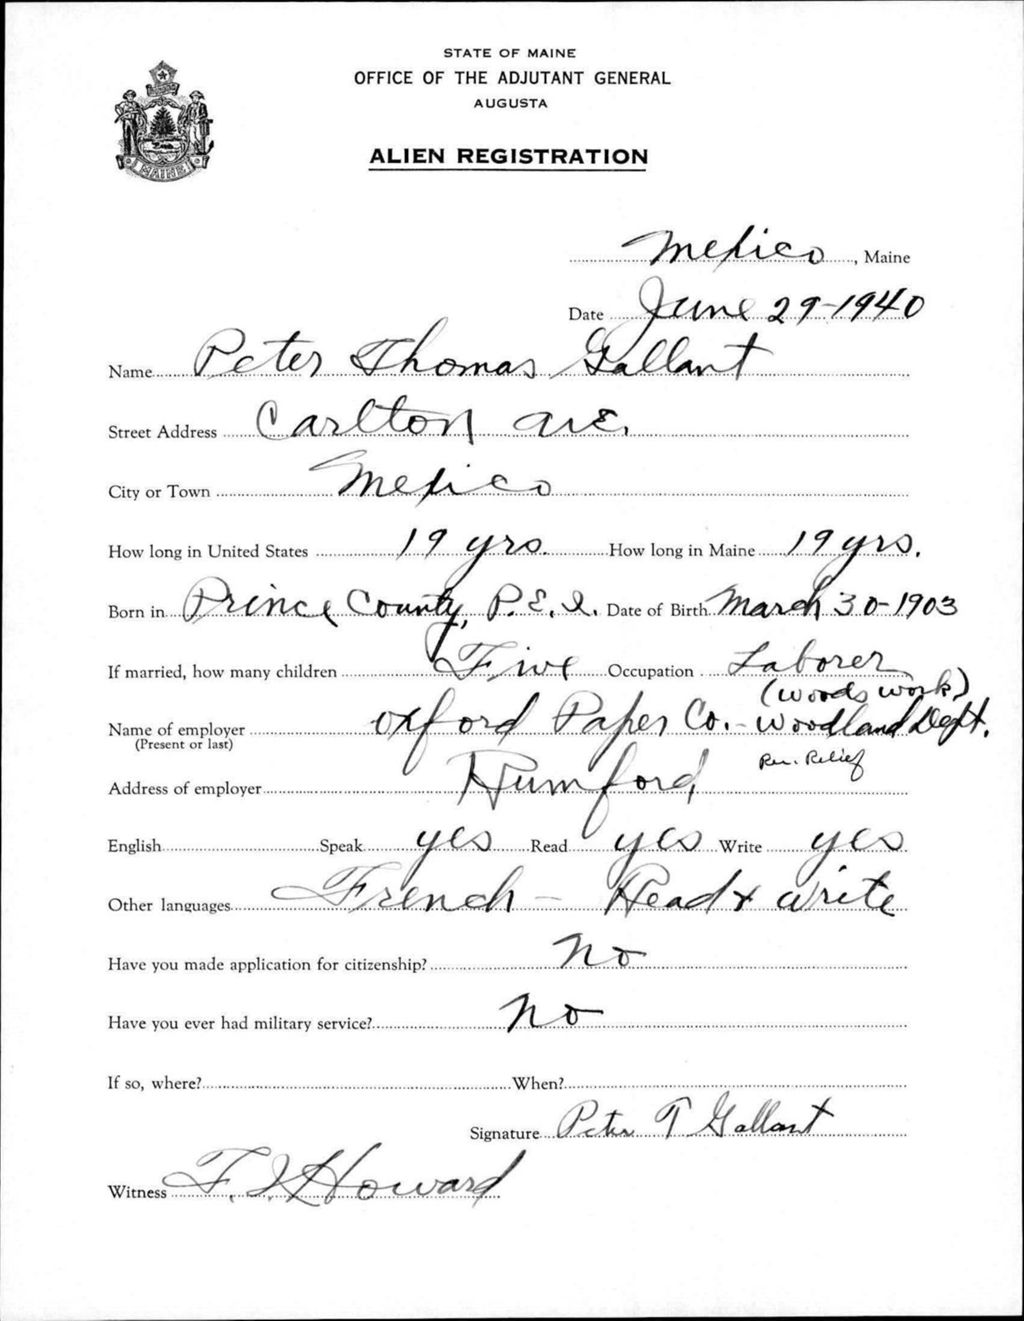 STATE OF MAINE
OFFICE OF THE ADJUTANT GENERAL
AUGUSTA
ALIEN REGISTRATION
MAINE
Mexico, Maine
Date June 29-1940
Name Peter Thomas Gallant
Street Address Carlton Ave.
City or Town Mexico
How long in United States 19 yrs. How long in Maine 19 yrs.
Born in Prince County, P.E.I. Date of Birth March 30-1903
If married, how many children Five Occupation Laborer
(Woods work)
Name of employer Oxford Paper Co. - Woodland Dept.
(Present or last)
Relief
Address of employer Rumford,
English Speak yes Read yes Write yes
Other languages French - Read & write
Have you made application for citizenship? No
Have you ever had military service? No
If so, where? When?
Signature Peter T Gallant
Witness F. J. Howard